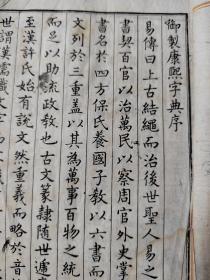 御製康熙字典序
易傳曰上古結繩而治後世聖人易之
書契百官以治萬民以察周官外史掌
書名於四方保氏養國子教以六書而
文列於三重蓋以其為萬事百物之統
而足以助流政教也古文篆隸隨世遞
至漢許氏始有說文然重義而略於音
世謂漢儒識文字而